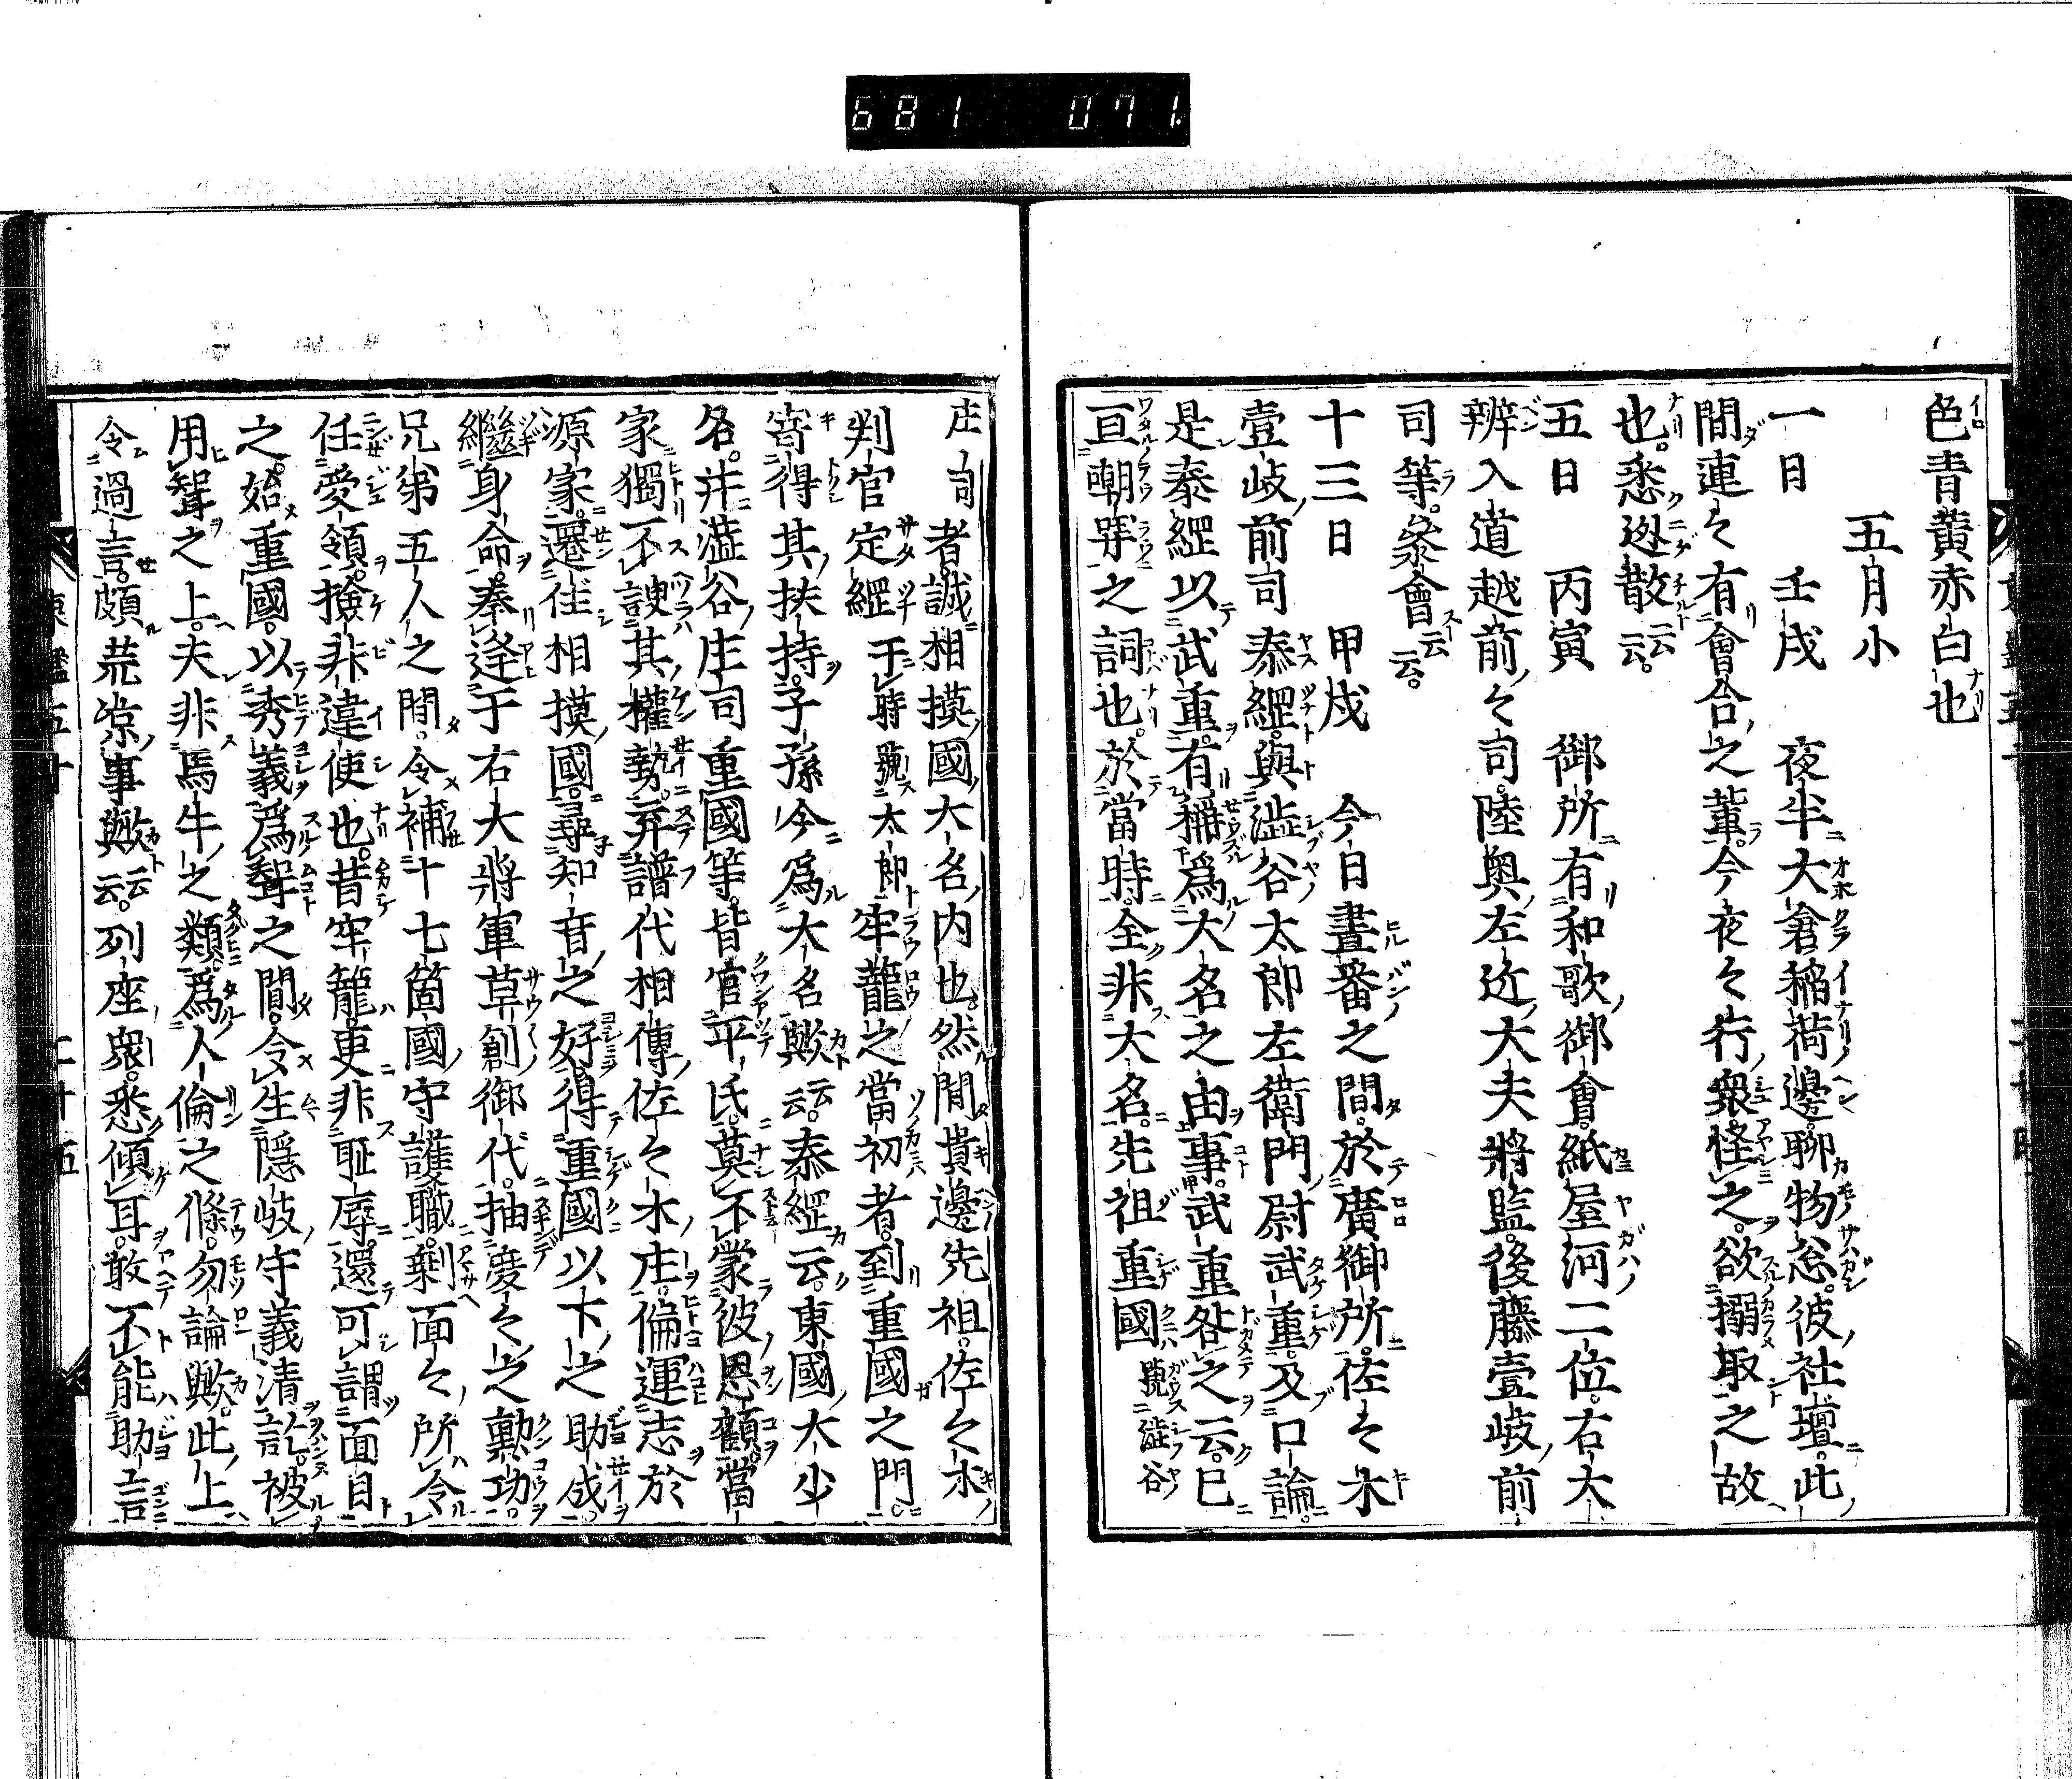 681 071
色青黄赤白也
五月小
一日 壬戌 夜半大倉稲荷邊聊物忩彼社壇此
間連々有會合之輩今夜々行衆怪之欲搦取之故
也悉逃散云云
五日 丙寅 御所有和歌御會紙屋河二位右大
辨入道越前々司陸奥左近大夫將監後藤壹岐前
司等参會云云
十三日 甲戌 今日晝番之間於廣御所佐々木
壹岐前司泰經與澁谷太郎左衛門尉武重及口論
是泰經以武重有稱爲大名之由事武重咎之云已
亘嘲哢之詞也於當時全非大名先祖重國號澁谷
庄司者誠相摸國大名内也然間貴邊先祖佐々木
判官定經于時號太郎牢籠之當初者到重國之門
寄得其扶持子孫今爲大名歟云云泰經云東國大少
名并澁谷庄司重國等皆官平氏莫不蒙彼恩顧當
家獨不諛其權勢弃譜代相傳佐々木庄偏運志於
源家遷住相摸國尋知音之好得重國以下之助成
繼身命奉逢于右大將軍草創御代抽度々之勲功
兄弟五人之間令補十七箇國守護職剰面々所令
任受領撿非違使也昔牢籠更非耻辱還可謂面目
之始重國以秀義爲聟之間令生隠岐守義清訖被
用聟之上夫非馬牛之類爲人倫之條勿論歟此上
令過言頗荒凉事歟云云列座衆悉傾耳敢不能助言